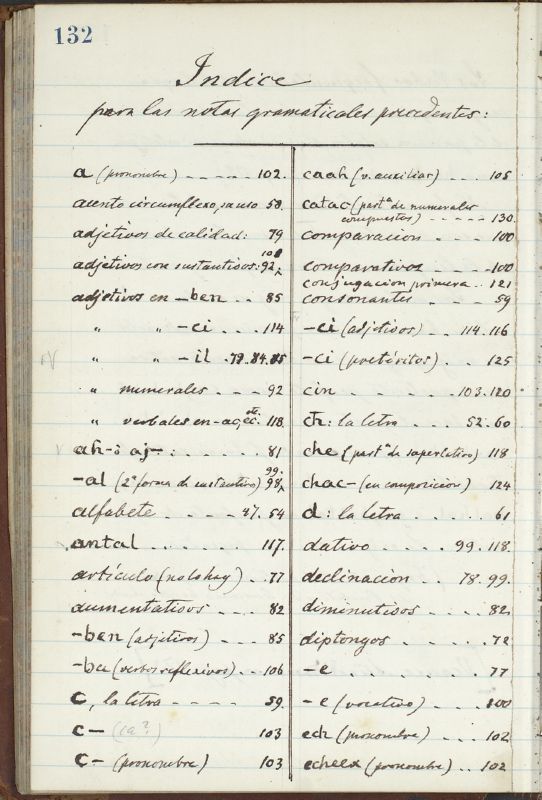 132
Indice
para las notas gramaticales precedentes:
a (pronombre) ----- 102.
acento circumflexo, su uso 58.
adjetivos de calidad: 79
108
adjetivos con sustantivos: 92,
adjetivos en -ben .. 85
" " -ci .... 114
" " -il . 79.84.85
" numerales --- 92
" verbales en -aç, etc. 118
ah- ò aj- : .... 81
99.
-al (2ª forma de sustantivo) 98,
alfabete .... 47. 54
antal ..... 117.
artículo (no lo hay) .. 77
aumentativos ... 82
-ben (adjetivos) ... 85
-be (verbos reflexivos) .. 106
c, la letra ---- 59.
c- (ca?) 103
c- (pronombre) 103
caah (v. auxiliar) ... 105
catac (partª de numerales
compuestos) ----- 130.
comparacion --- 100
comparativos ---- 100
conjugacion primera .. 121
consonantes .... 59
-ci (adjetivos) ... 114.116
-ci (pretéritos) ... 125
cin ...... 103.120
ch: la letra ... 52.60
che (partª de superlativo) 118
chac- (en composicion) 124
d: la letra ..... 61
dativo .... 99.118.
declinacion ... 78.99.
diminutivos .... 82
diptongos .... 72
-e ....... 77
-e (vocativo) ... 100
ech (pronombre) ... 102
echeex (pronombre) .. 102